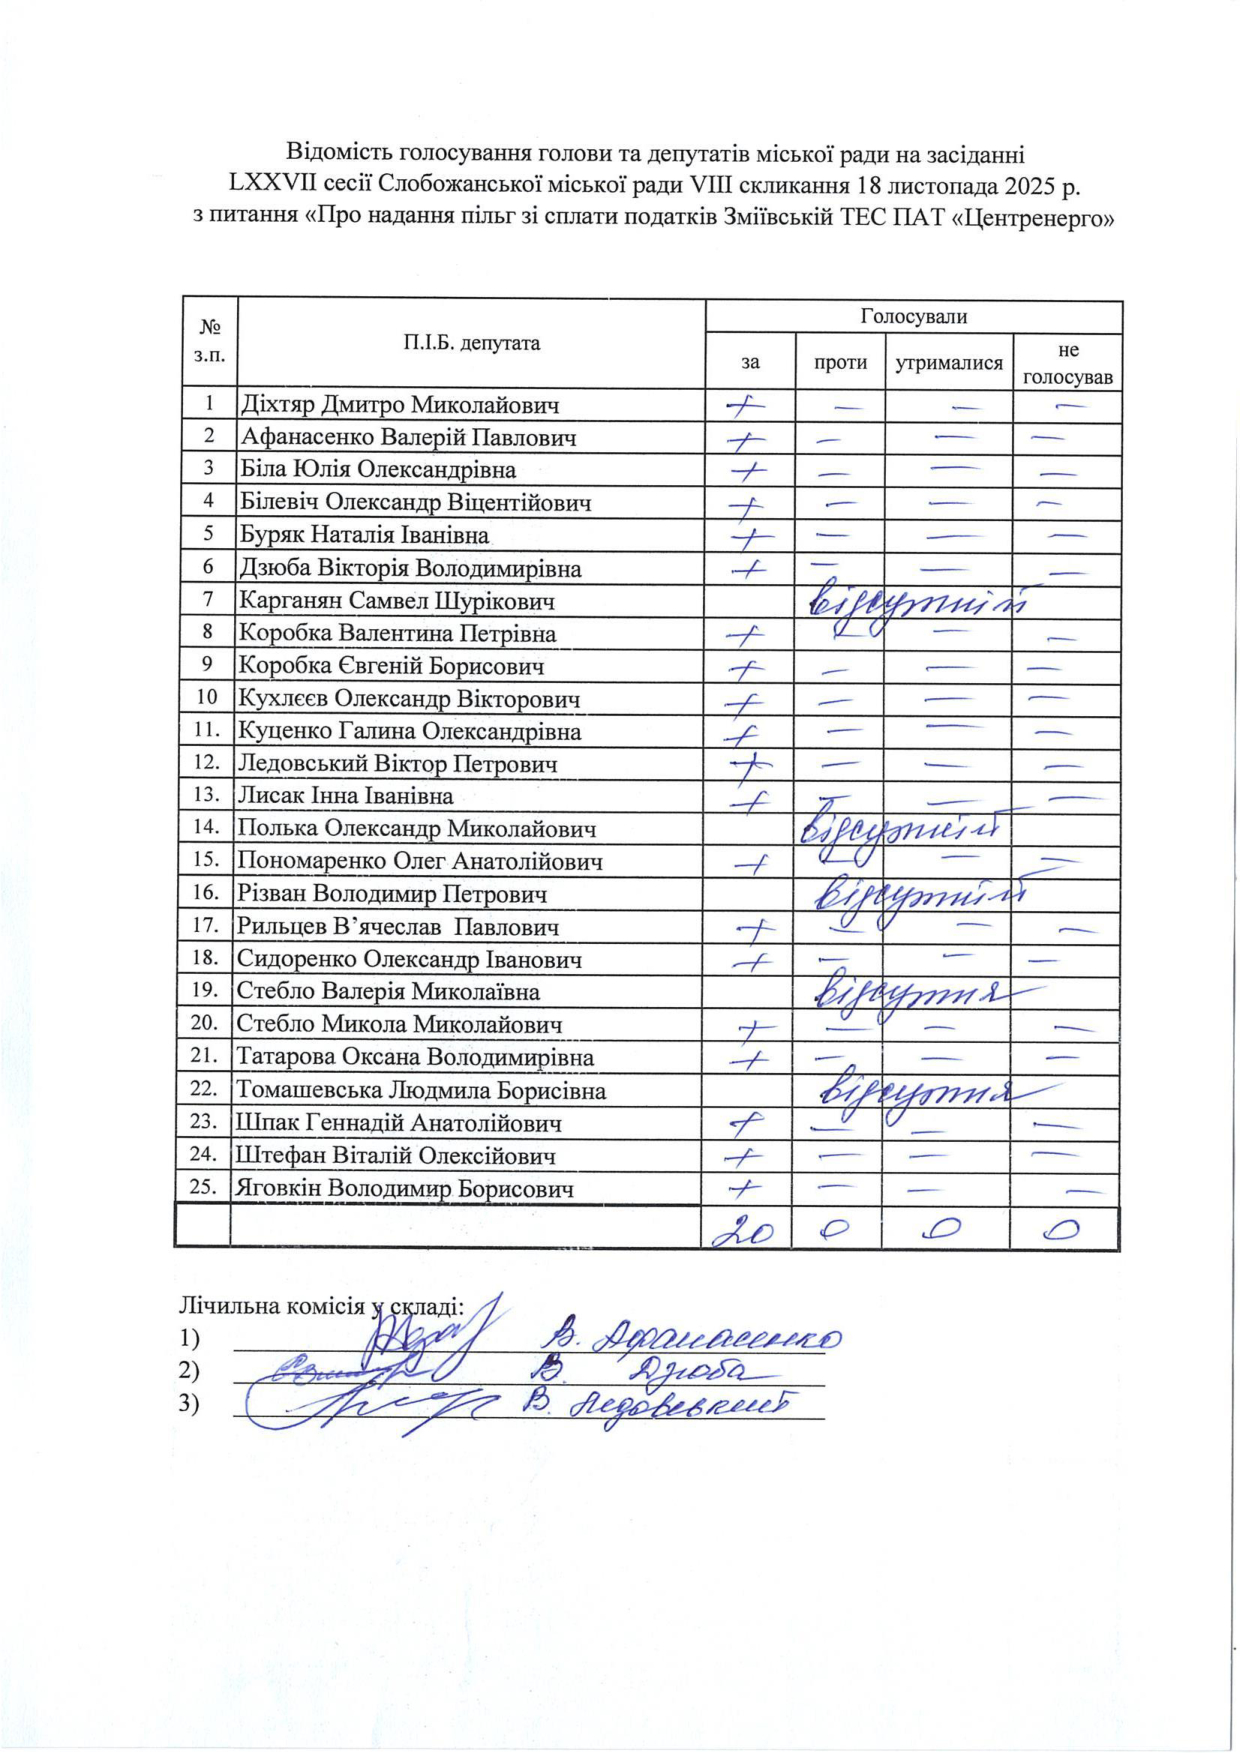 Відомість голосування голови та депутатів міської ради на засіданні
LXXVII сесії Слобожанської міської ради VIII скликання 18 листопада 2025 р.
з питання «Про надання пільг зі сплати податків Зміївській ТЕС ПАТ «Центренерго»
№ з.п. П.І.Б. депутата Голосували
за проти утрималися не голосував
1 Діхтяр Дмитро Миколайович + — — —
2 Афанасенко Валерій Павлович + — — —
3 Біла Юлія Олександрівна + — — —
4 Білевіч Олександр Віцентійович + — — —
5 Буряк Наталія Іванівна + — — —
6 Дзюба Вікторія Володимирівна + — — —
7 Карганян Самвел Шурікович відсутній
8 Коробка Валентина Петрівна + — — —
9 Коробка Євгеній Борисович + — — —
10 Кухлєєв Олександр Вікторович + — — —
11. Куценко Галина Олександрівна + — — —
12. Ледовський Віктор Петрович + — — —
13. Лисак Інна Іванівна + — — —
14. Полька Олександр Миколайович відсутній
15. Пономаренко Олег Анатолійович + — — —
16. Різван Володимир Петрович відсутній
17. Рильцев В’ячеслав Павлович + — — —
18. Сидоренко Олександр Іванович + — — —
19. Стебло Валерія Миколаївна відсутня
20. Стебло Микола Миколайович + — — —
21. Татарова Оксана Володимирівна + — — —
22. Томашевська Людмила Борисівна відсутня
23. Шпак Геннадій Анатолійович + — — —
24. Штефан Віталій Олексійович + — — —
25. Яговкін Володимир Борисович + — — —
20 0 0 0
Лічильна комісія у складі:
1) В. Афанасенко
2) В. Дзюба
3) В. Ледовський